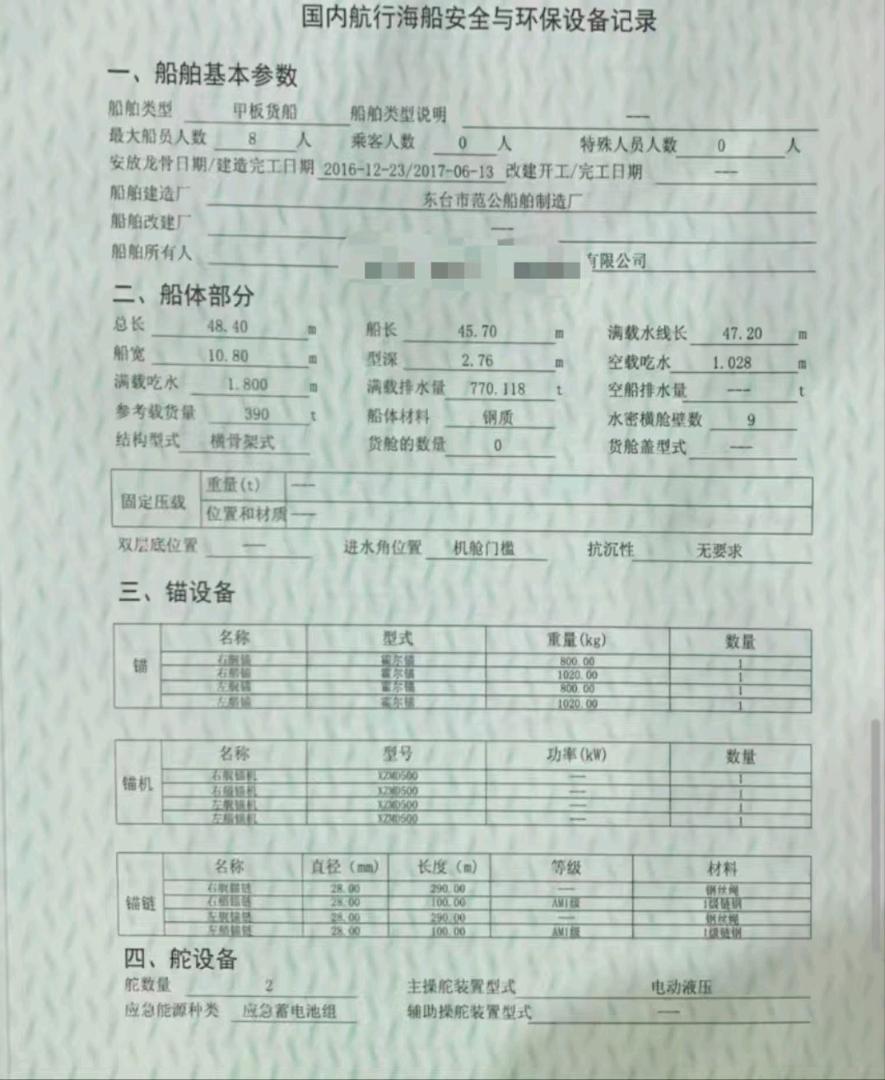 国内航行海船安全与环保设备记录
一、船舶基本参数
船舶类型 甲板货船 船舶类型说明 ---
最大船员人数 8 人 乘客人数 0 人 特殊人员人数 0 人
安放龙骨日期/建造完工日期 2016-12-23/2017-06-13 改建开工/完工日期 ---
船舶建造厂 东台市范公船舶制造厂
船舶改建厂 ---
船舶所有人 有限公司
二、船体部分
总长 48.40 m 船长 45.70 m 满载水线长 47.20 m
船宽 10.80 m 型深 2.76 m 空载吃水 1.028 m
满载吃水 1.800 m 满载排水量 770.118 t 空船排水量 --- t
参考载货量 390 t 船体材料 钢质 水密横舱壁数 9
结构型式 横骨架式 货舱的数量 0 货舱盖型式 ---
固定压载 重量(t) ---
位置和材质 ---
双层底位置 --- 进水角位置 机舱门槛 抗沉性 无要求
三、锚设备
锚 名称 型式 重量(kg) 数量
右艉锚 霍尔锚 800.00 1
右艏锚 霍尔锚 1020.00 1
左艉锚 霍尔锚 800.00 1
左艏锚 霍尔锚 1020.00 1
锚机 名称 型号 功率(kW) 数量
右艉锚机 XZMD500 --- 1
右艏锚机 XZMD500 --- 1
左艉锚机 XZMD500 --- 1
左艏锚机 XZMD500 --- 1
锚链 名称 直径（mm） 长度（m） 等级 材料
右艉锚链 28.00 290.00 --- 钢丝绳
右艏锚链 28.00 100.00 AM1级 1级链钢
左艉锚链 28.00 290.00 --- 钢丝绳
左艏锚链 28.00 100.00 AM1级 1级链钢
四、舵设备
舵数量 2 主操舵装置型式 电动液压
应急能源种类 应急蓄电池组 辅助操舵装置型式 ---